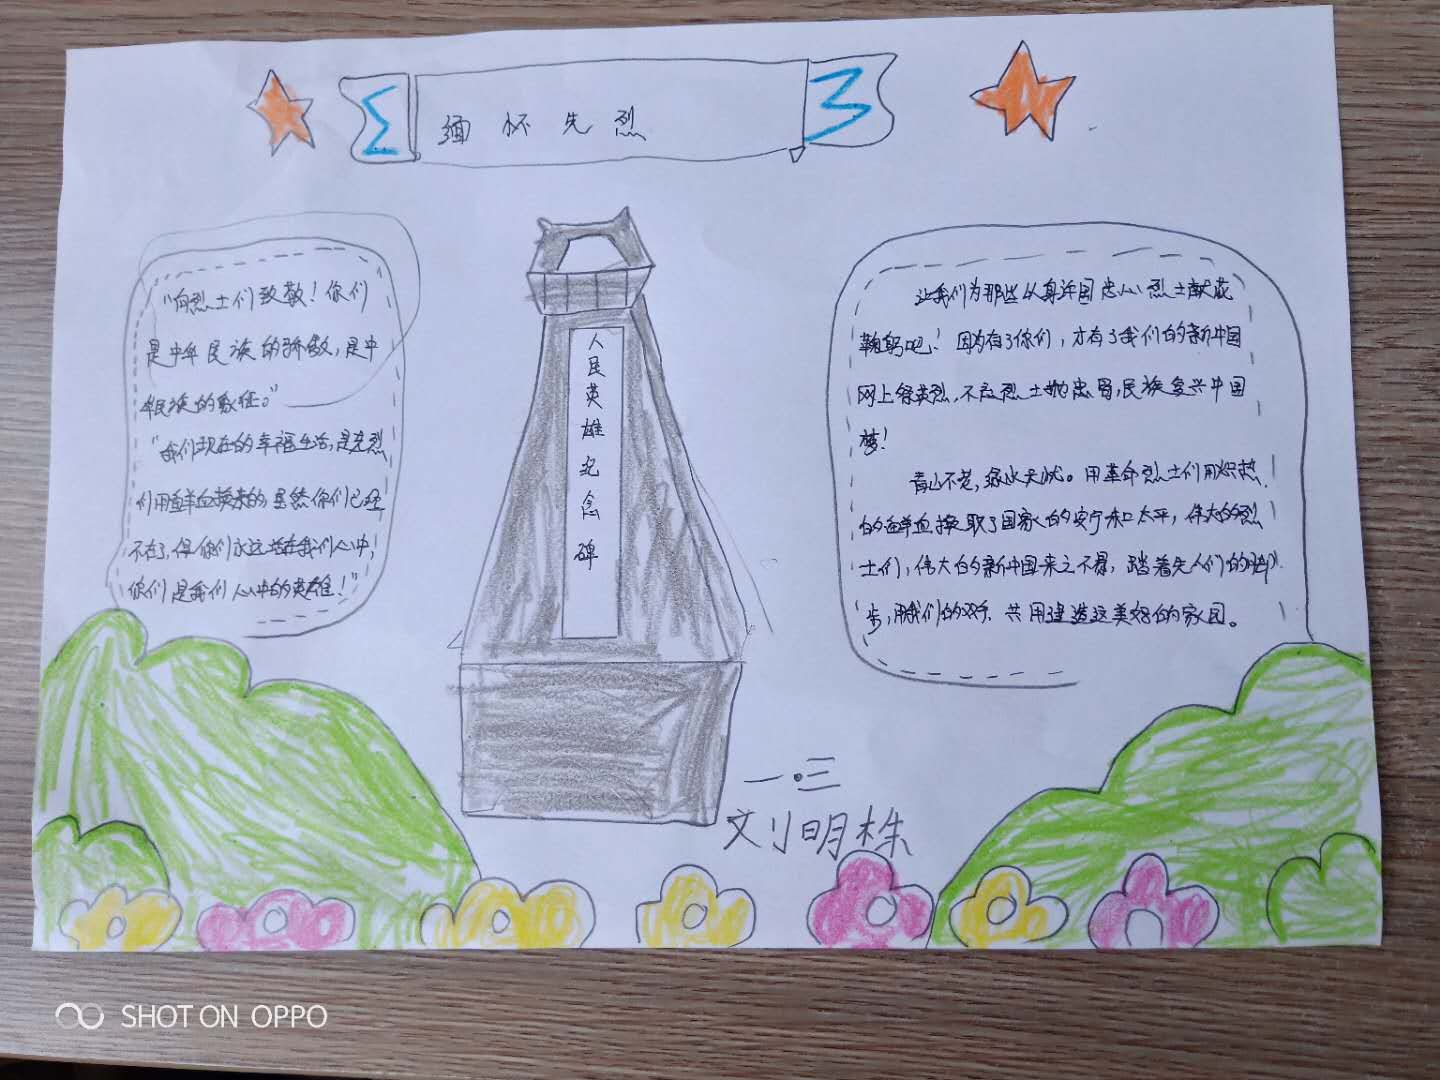 缅怀先烈
"向烈士们致敬！你们
是中华民族的骄傲，是中
华民族的象征。"
"我们现在的幸福生活，是先烈
们用鲜血换来的，虽然你们已经
不在了，但你们永远活在我们心中，
你们是我们心中的英雄！"
人民英雄纪念碑
让我们为那些以身许国忠心烈士献花
鞠躬吧！因为有了你们，才有了我们的新中国
网上祭英烈，不忘烈士抛忠骨，民族复兴中国
梦！
青山不老，绿水无忧。用革命烈士们用炽热
的鲜血换取了国家的安宁和太平，伟大的烈
士们，伟大的新中国来之不易，踏着先人们的脚
步，用我们的双手，共用建造这美好的家园。
一·三
刘明株
SHOT ON OPPO